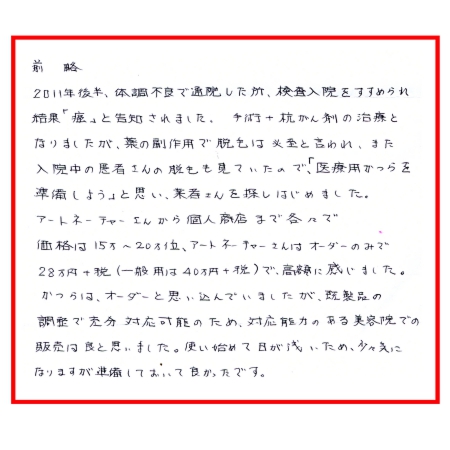 前略
2011年後半、体調不良で通院した所、検査入院をすすめられ
結果「癌」と告知されました。手術+抗がん剤の治療と
なりましたが、薬の副作用で脱毛は必至と言われ、また
入院中の患者さんの脱毛も見ていたので、「医療用かつらを
準備しよう」と思い、業者さんを探しはじめました。
アートネーチャーさんから個人商店まで各々で
価格は15万~20万位、アートネーチャーさんはオーダーのみで
28万円+税(一般用は40万円+税)で、高額に感じました。
かつらは、オーダーと思い込んでいましたが、既製品の
調整で充分対応可能のため、対応能力のある美容院での
販売は良と思いました。使い始めて日が浅いため、少々気に
なりますが準備しておいて良かったです。